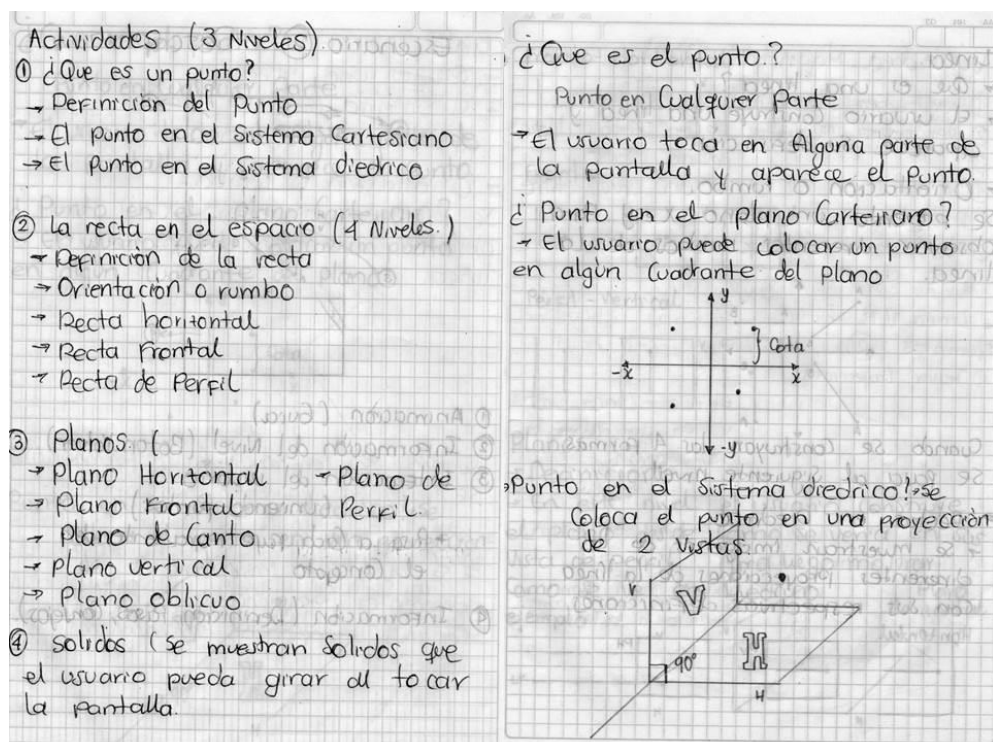 Actividades (3 Niveles)
① ¿Que es un punto?
→ Definición del Punto
→ El punto en el Sistema Cartesiano
→ El punto en el Sistema diedrico
② La recta en el espacio (4 Niveles.)
→ Definición de la recta
→ Orientación o rumbo
→ Recta horizontal
→ Recta Frontal
→ Recta de Perfil
③ Planos (
→ Plano Horizontal → Plano de
→ Plano Frontal Perfil
→ Plano de Canto
→ Plano vertical
→ Plano oblicuo
④ Solidos (Se muestran Solidos que
el usuario pueda girar al tocar
la pantalla.
¿Que es el punto.?
Punto en Cualquier Parte
→ El usuario toca en Alguna parte de
la pantalla y aparece el Punto.
¿ Punto en el plano Cartesiano?
→ El usuario puede colocar un punto
en algún Cuadrante del plano
y
Cota
-x x
-y
Punto en el Sistema diedrico! Se
Coloca el punto en una proyección
de 2 Vistas
V
V
H
90°
H